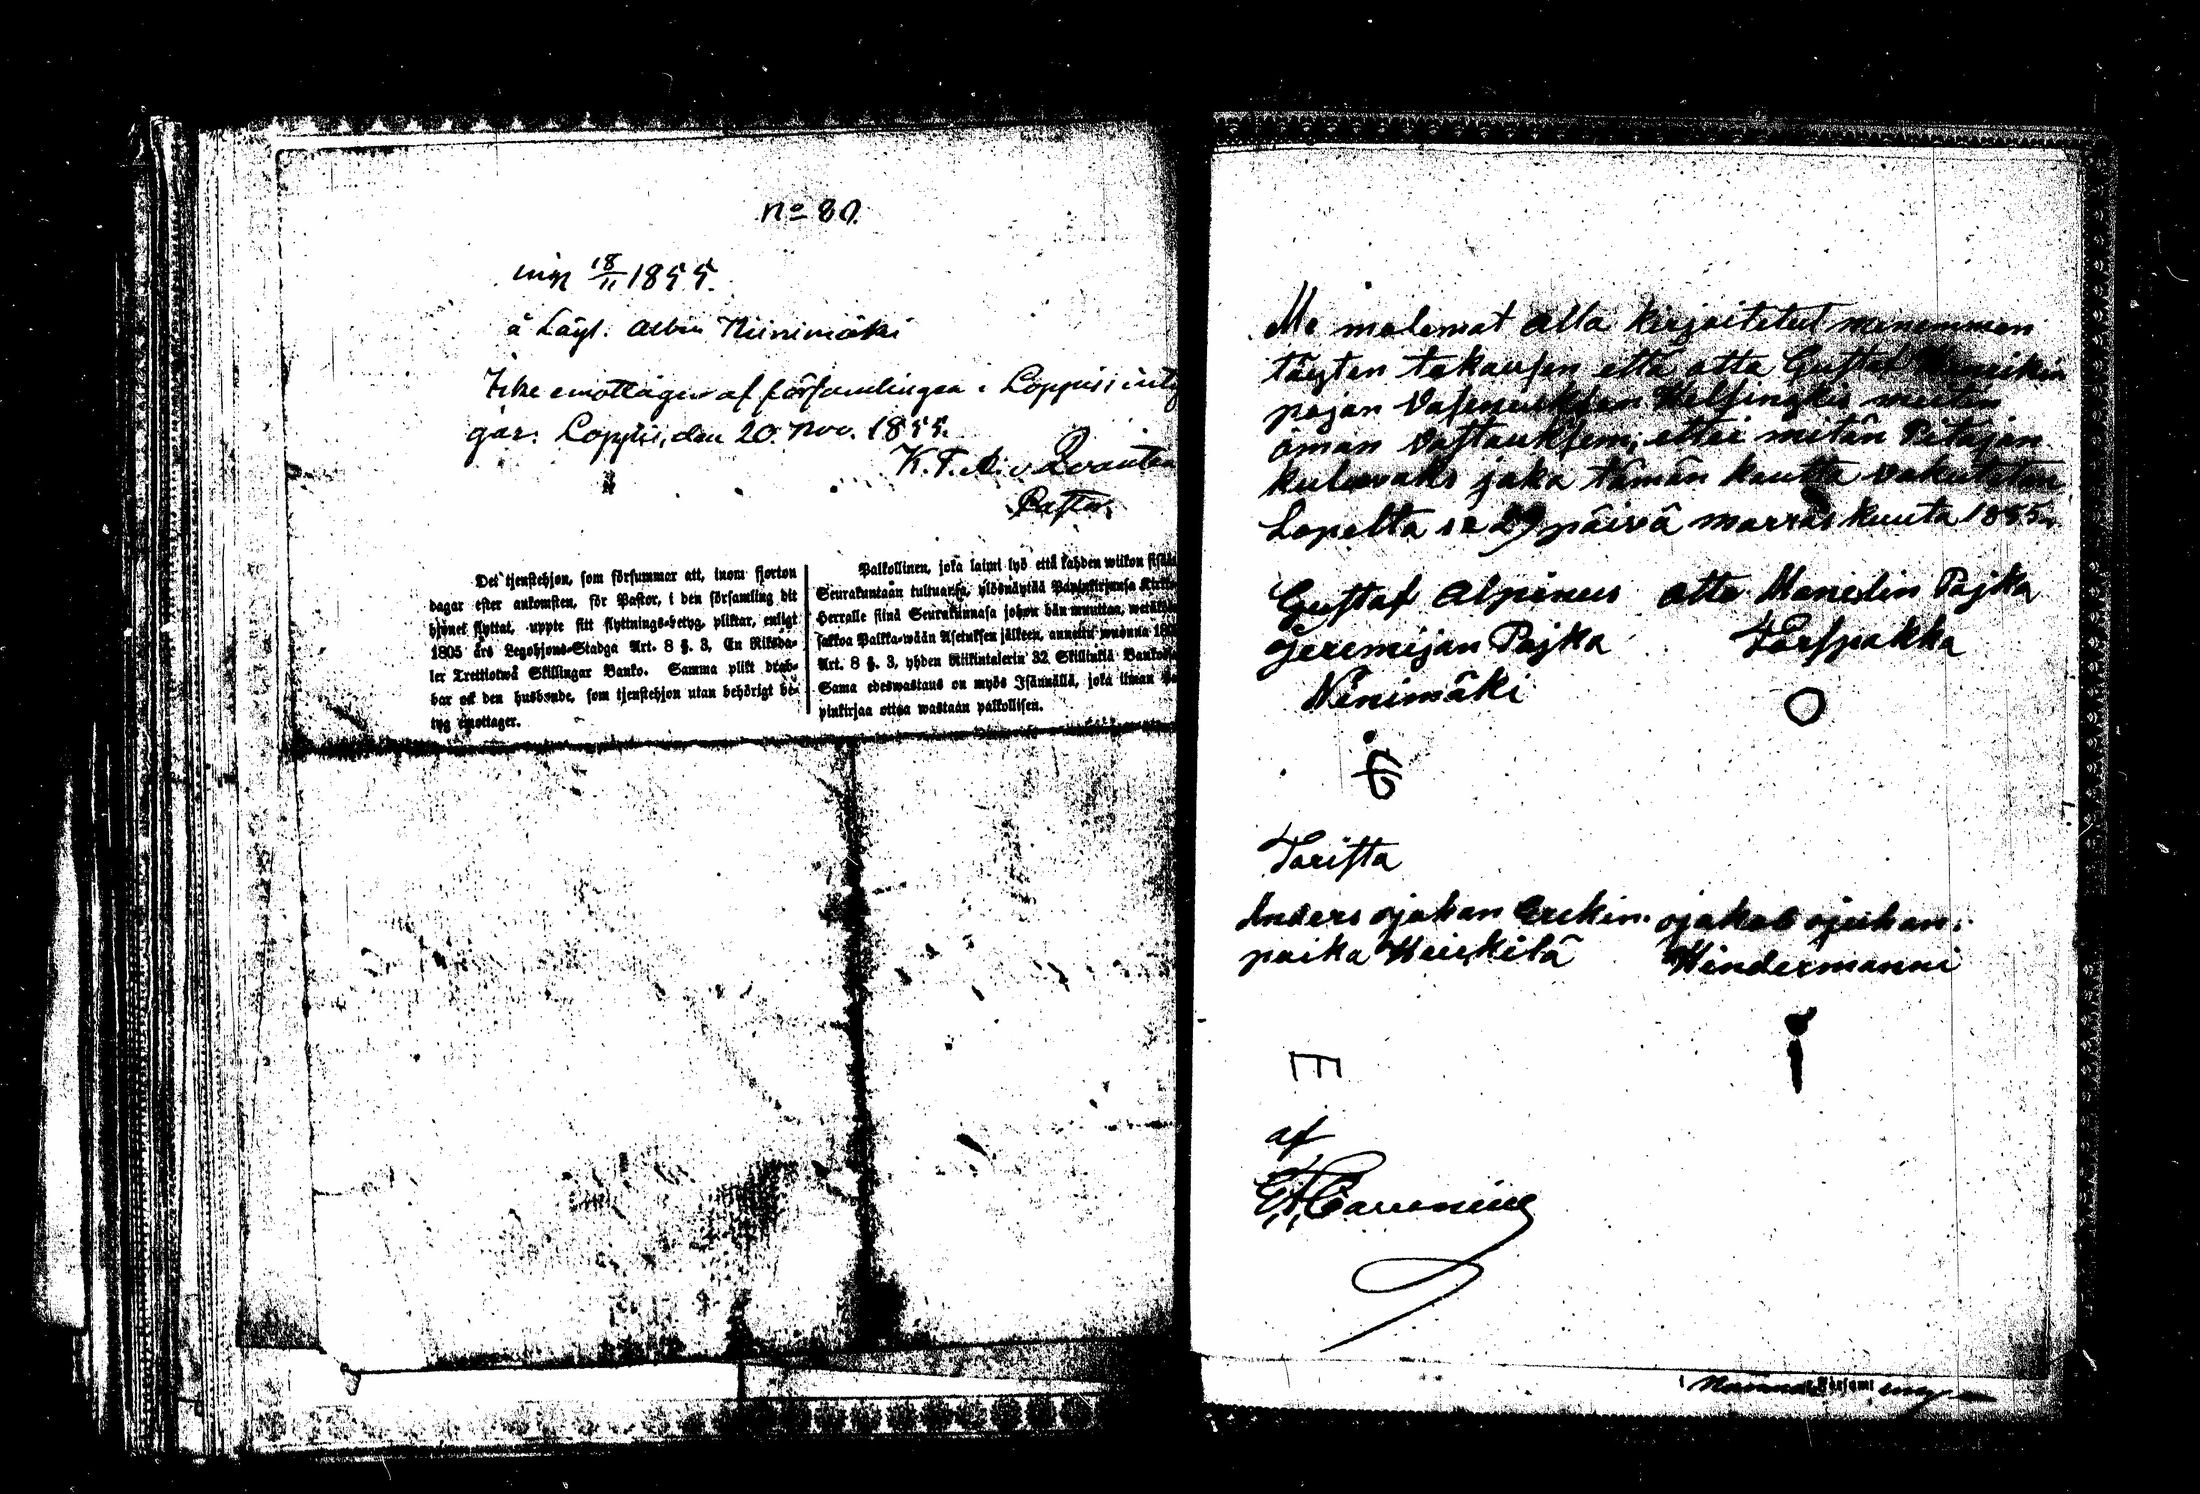 no 80.
ing 18/11 1855.
å Läyl. Albin Niinimäki
Icke emottagen af församlingen i Loppis; intygar.
Loppis, den 20. Nov. 1855.
K. F. A. v Qvanten
Pastor.
Det tjenstehjon, som försummar att, inom fjorton
dagar efter ankomsten, för Pastor, i den församling dit
hjonet flyttat, uppte sitt flyttnings-betyg, pliktar, enligt
1805 års Legohjons-Stadga Art. 8 §. 3, En Riksda-
ler Trettiotwå Skillingar Banko. Samma plikt drab-
bar ock den husbonde, som tjenstehjon utan behörigt be-
tyg emottager.
Palkollinen, joka laimi lyö että kahden wiikon sisälä
Seurakuntaan tultuansa, ylösnäytää Papinkirjansa Kirkko-
Herralle siinä Seurakunnasa johon hän muuttaa, wetäkön
sakkoa Palkka-wään Asetuksen jälkeen, annettu wuonna 180
Art. 8 §. 3, yhden Riikintalerin 32 Skillinkiä Bankosa
Sama edeswastaus on myös Isännällä, joka ilman Pa-
pinkirjaa ottaa wastaan palkollisen.
Me molemat alla kirjoitetut menemmen
täyten takausen että otta Gustaf Henrikin
pojan Helsingkis
åman vastauksem, ettei mitän Pitäjän
kuluvaks joka tämän kautta vakutetan
Lopelta se 29 päivä marraskuuta 1855.
Gustaf Alpinus
Jeremijan Pojka
Ninimäki
otto Manelin Pojka
Torspakka
Torista
Anders ojohan Erekin.
poika Heiskilä
ojakob ojuhan.
Hindermanni
af